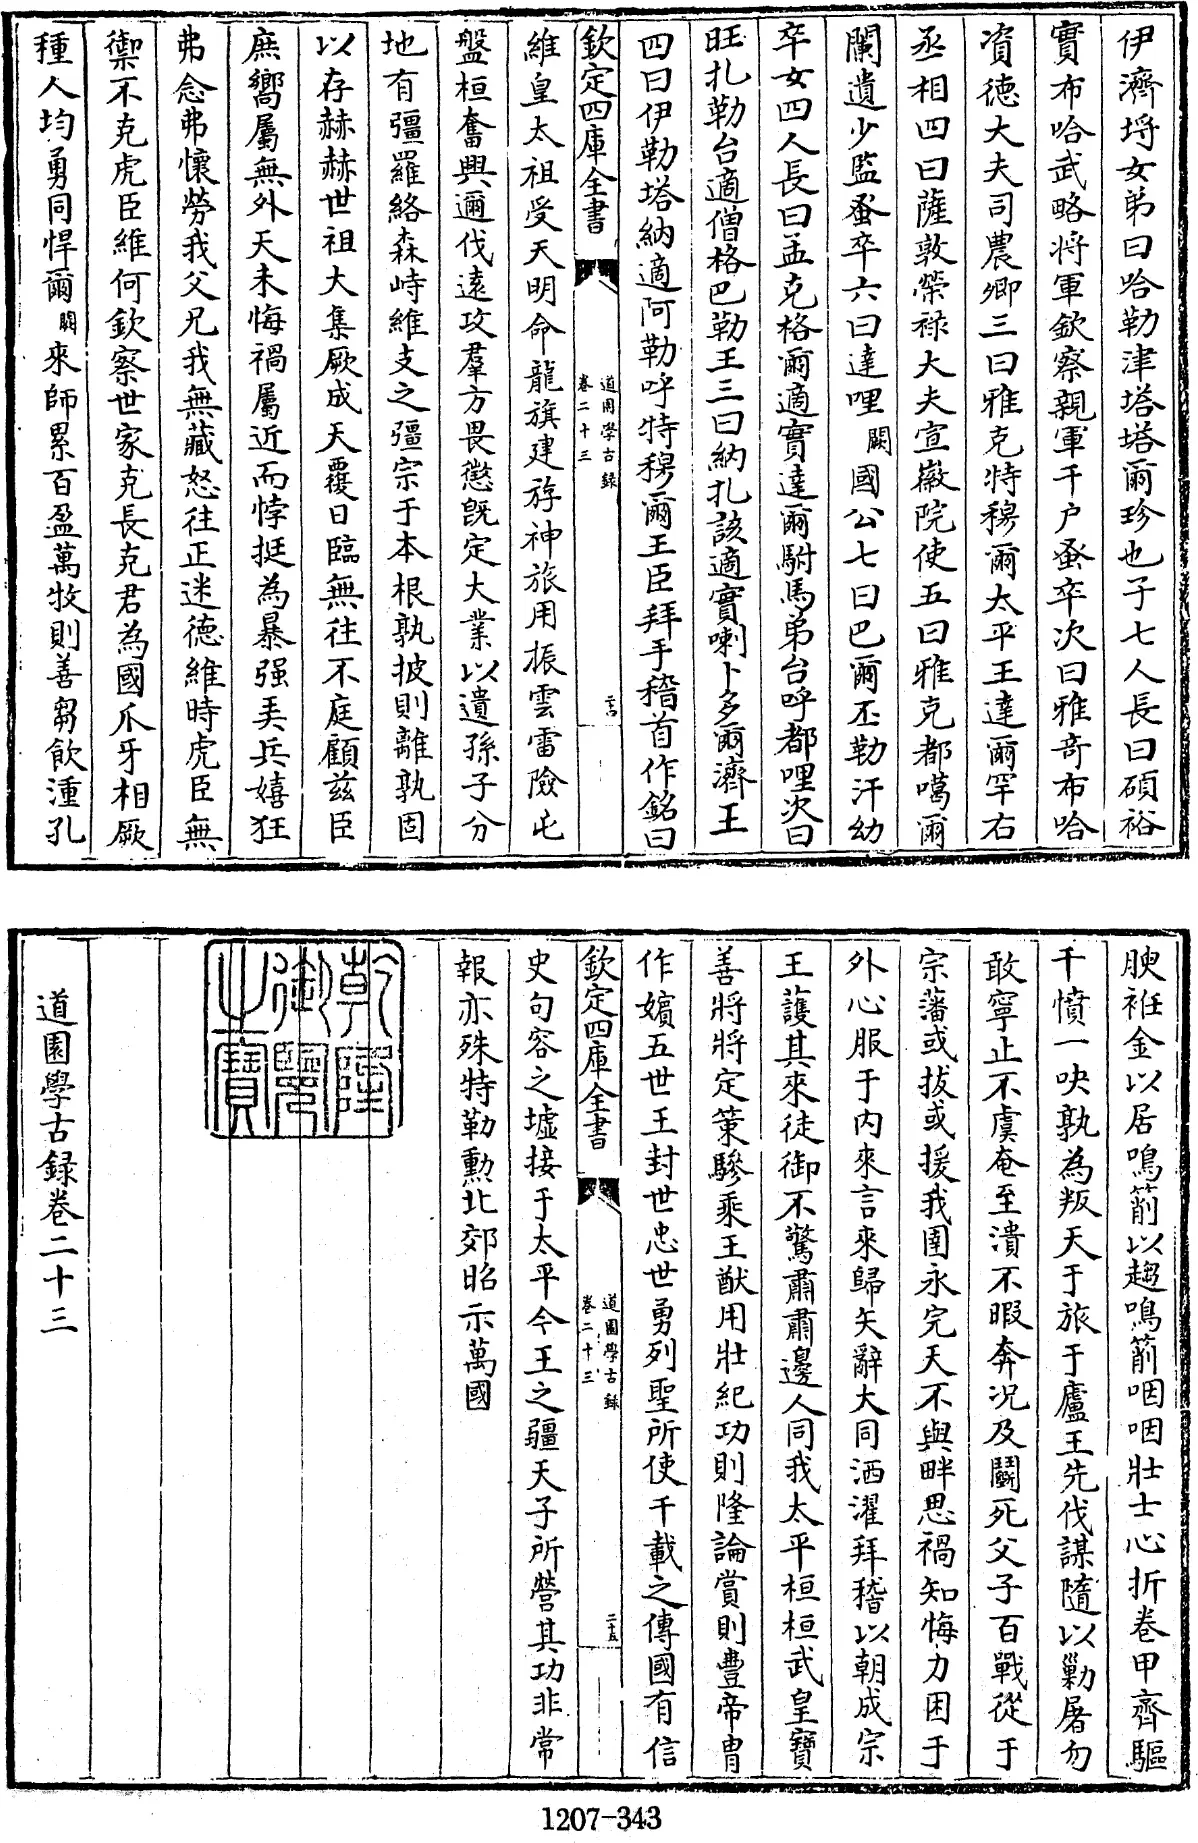 伊濟埒女弟曰哈勒津塔塔爾珍也子七人長曰碩裕
實布哈武略將軍欽察親軍千户蚤卒次曰雅竒布哈
資德大夫司農卿三曰雅克特穆爾太平王達爾罕右
丞相四曰薩敦榮祿大夫宣徽院使五曰雅克都噶爾
闌遺少監蚤卒六曰達哩闕國公七曰巴爾丕勒汗幼
卒女四人長曰孟克格爾適實達爾駙馬弟台呼都哩次曰
旺扎勒台適僧格巴勒王三曰納扎該適實喇卜多爾濟王
四曰伊勒塔納適阿勒呼特穆爾王臣拜手稽首作銘曰
欽定四庫全書
道園學古錄
卷二十三
維皇太祖受天明命龍旗建斿神旅用振雲雷險屯
盤桓奮興邇伐遠攻羣方畏懲旣定大業以遺孫子分
地有彊羅絡森峙維支之彊宗于本根孰披則離孰固
以存赫赫世祖大集厥成天覆日臨無往不庭顧兹臣
庶嚮屬無外天未悔禍屬近而悖挺為暴强弄兵嬉狂
弗念弗懷勞我父兄我無藏怒往正迷德維時虎臣無
禦不克虎臣維何欽察世家克長克君為國爪牙相厥
種人均勇同悍爾闕來師累百盈萬牧則善芻飲湩孔
腴袵金以居鳴箭以趨鳴箭咽咽壯士心折卷甲齊驅
千憤一吷孰為叛天于旅于廬王先伐謀隨以勦屠勿
敢寧止不虞奄至潰不暇奔况及鬭死父子百戰從于
宗藩或拔或援我圉永完天不與畔思禍知悔力困于
外心服于内來言來歸矢辭大同洒濯拜稽以朝成宗
王護其來徒御不驚肅肅邊人同我太平桓桓武皇寶
善將將定策驂乘王猷用壯紀功則隆論賞則豐帝胄
作嬪五世王封世忠世勇列聖所使千載之傳國有信
欽定四庫全書
道園學古錄
卷二十三
二十五
史句容之墟接于太平今王之疆天子所營其功非常
報亦殊特勒勲北郊昭示萬國
乾隆御覽之寶
道園學古錄卷二十三
1207-343